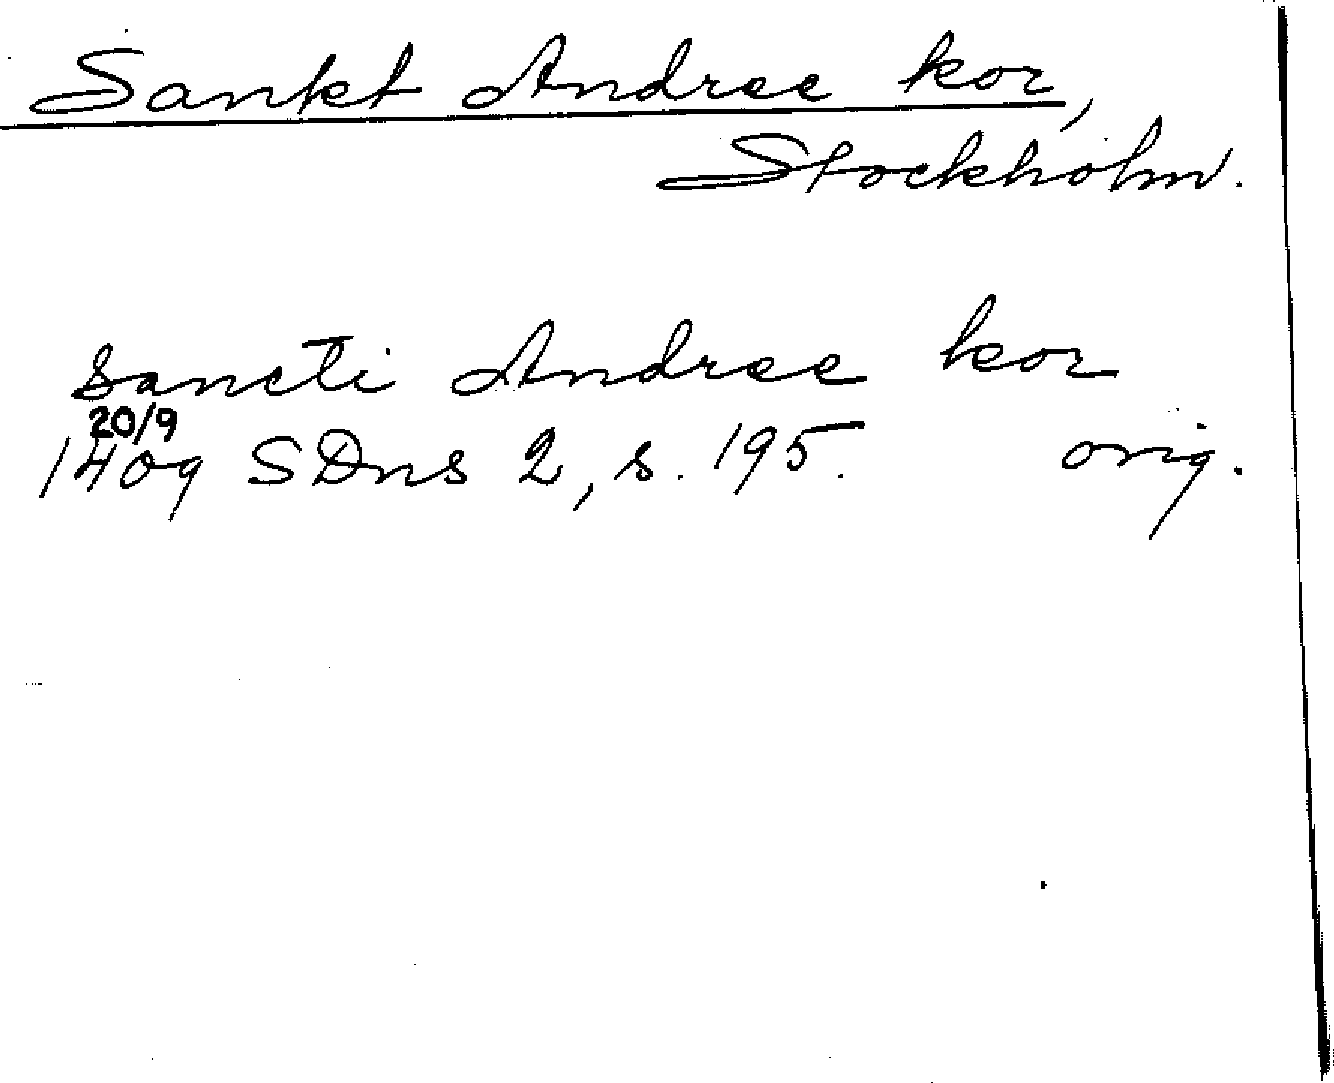 Sankt Andree kor,
Stockholm.
sancti Andree kor
20/9
1409 SDns 2, s. 195. orig.